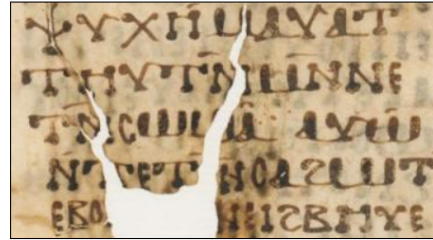 ⲯⲩⲭⲏⲙⲁⲩⲁⲧ
ⲧⲏⲩⲧⲛ̄ⲙⲛ̄ⲛⲉ
ⲧⲛ̄ⲥⲱⲙⲁ ⲁⲩⲱ
ⲛ̄ⲧⲉⲧⲛ̄ⲥⲁϩⲱⲧ
ⲉⲃⲟ ⲛⲉⲓϩⲃⲏⲩⲉ